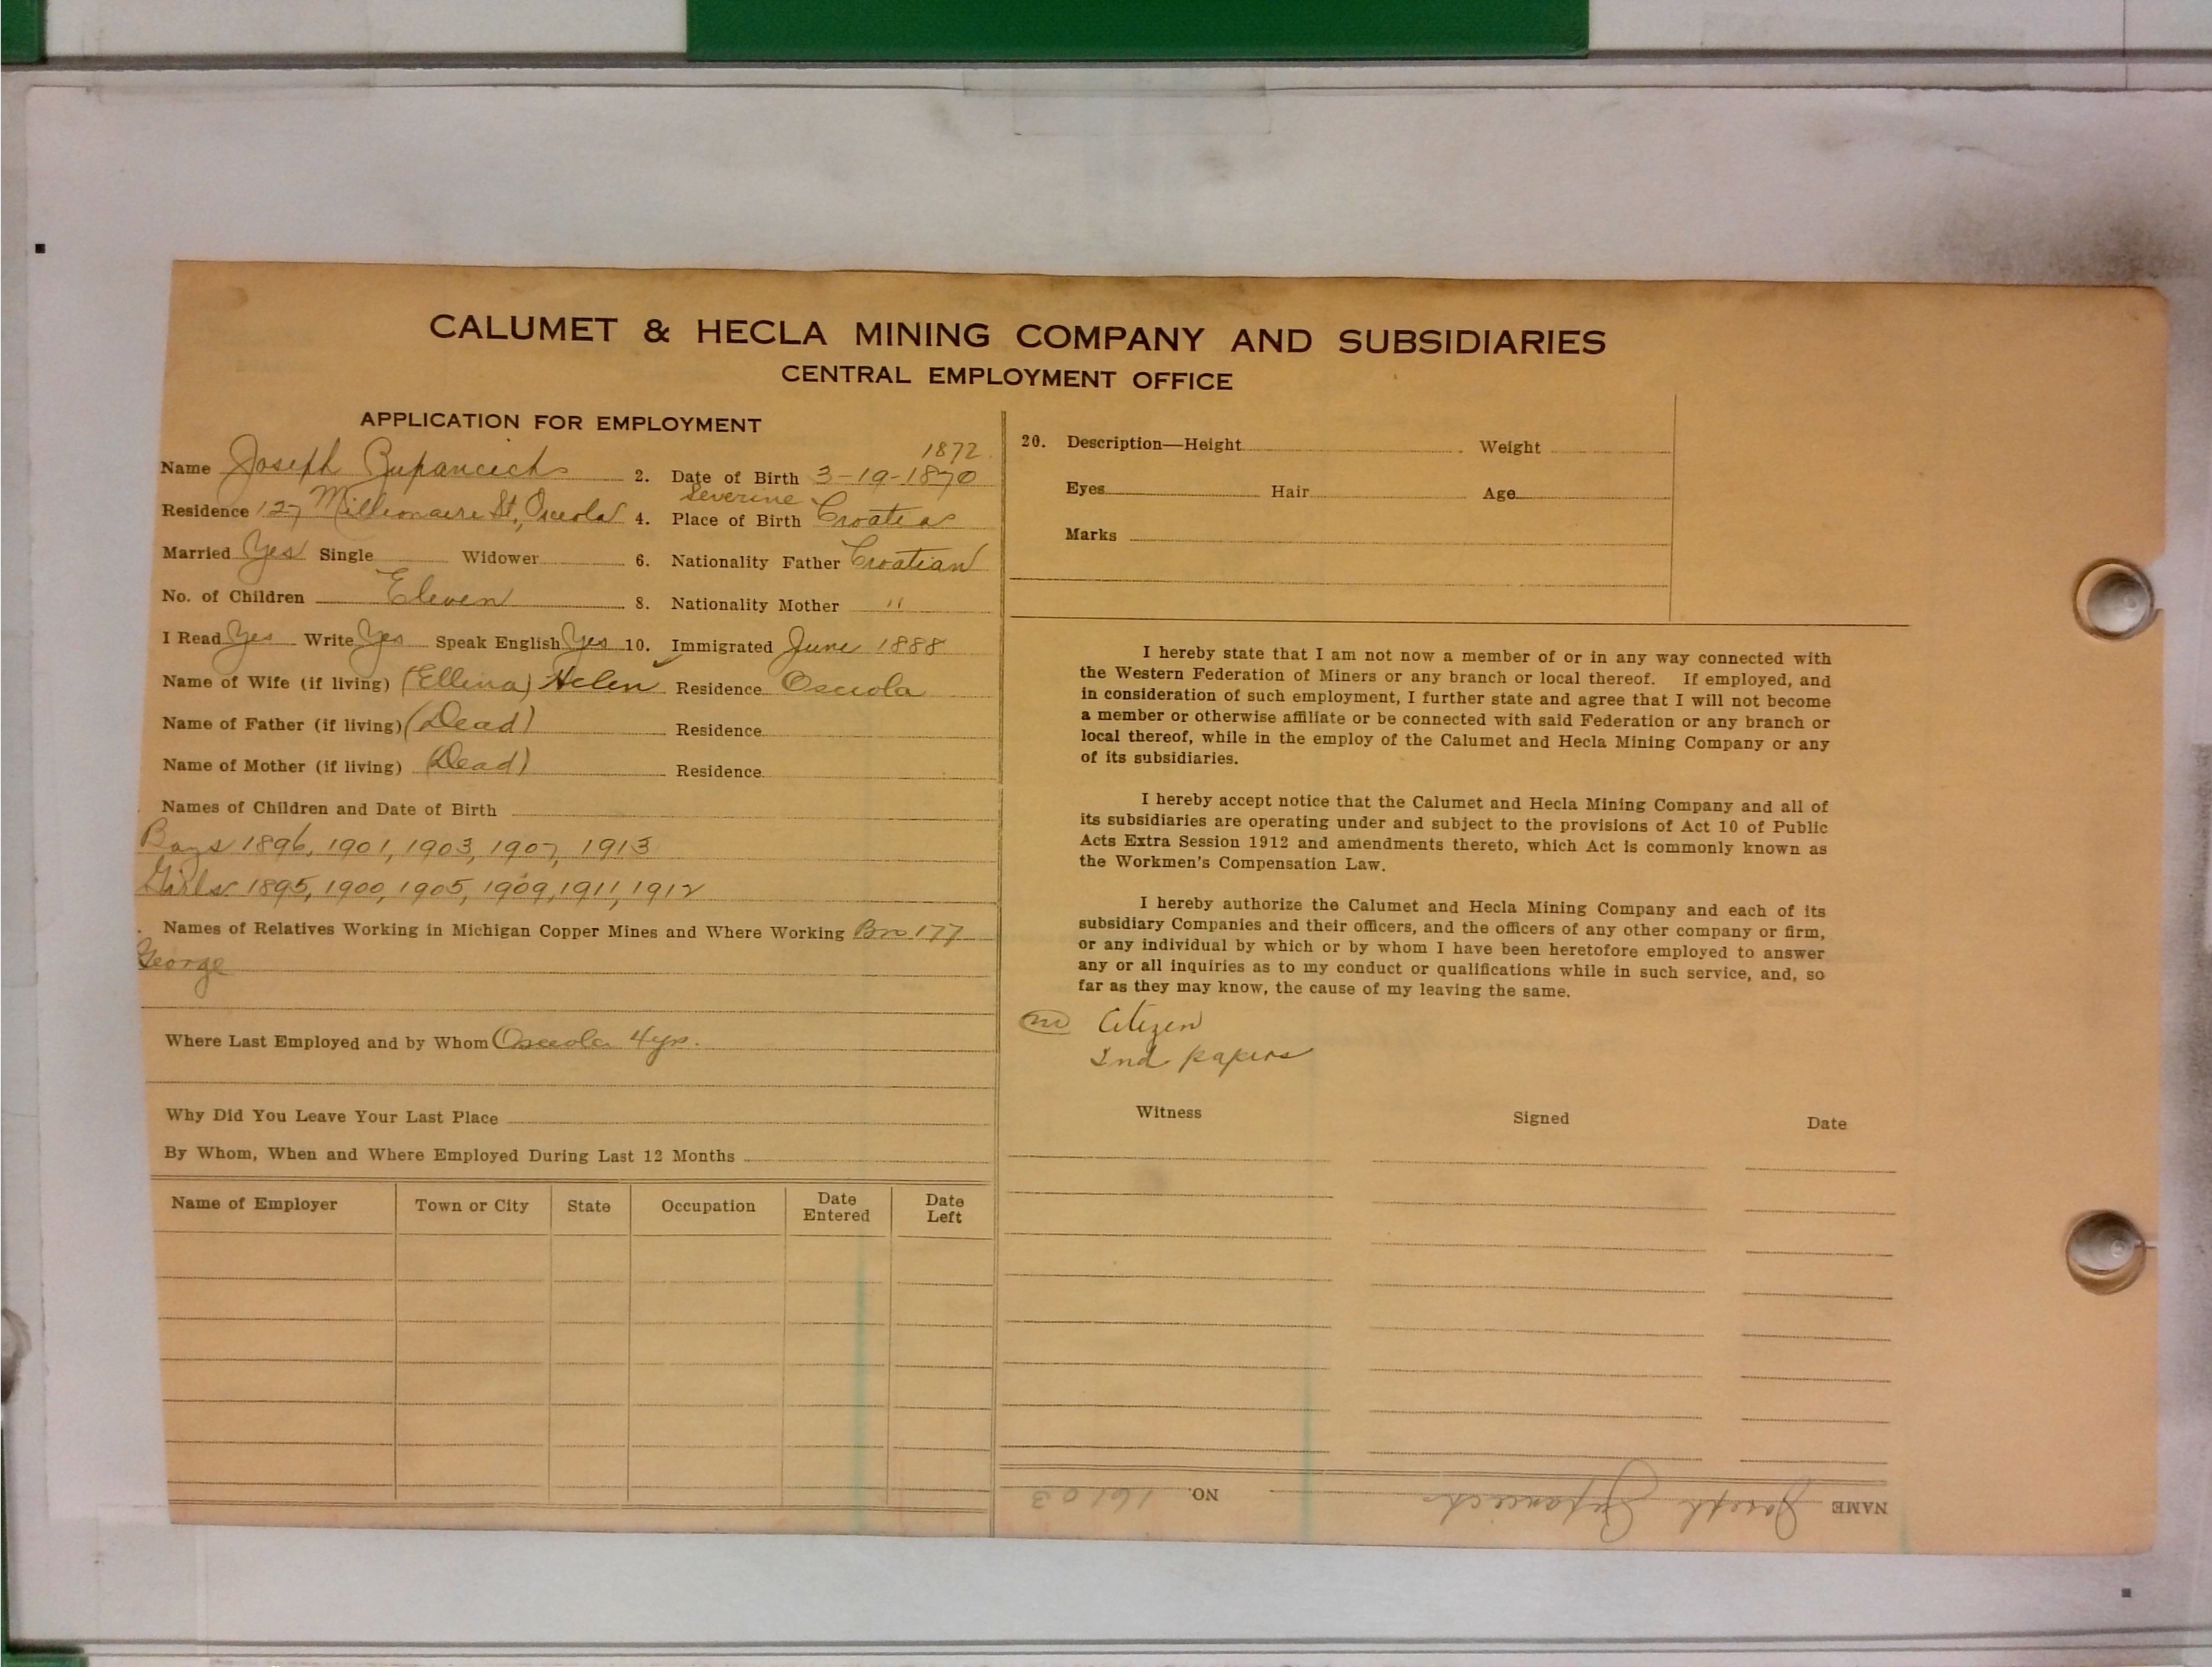 CALUMET & HECLA MINING COMPANY AND SUBSIDIARIES
CENTRAL EMPLOYMENT OFFICE
APPLICATION FOR EMPLOYMENT
1872
Name Joseph Zupancich 2. Date of Birth 3-19-1870
Severine
Residence 127 Millionaire St, Osceola 4. Place of Birth Croatia
Married Yes Single Widower 6. Nationality Father Croatian
No. of Children Eleven 8. Nationality Mother "
I Read Yes Write Yes Speak English Yes 10. Immigrated June 1888
Name of Wife (if living) (Ellina) Helen Residence Osceola
Name of Father (if living) (Dead) Residence
Name of Mother (if living) (Dead) Residence
Names of Children and Date of Birth
Boys 1896, 1901, 1903, 1907, 1913
Girls 1895, 1900, 1905, 1909, 1911, 1912
Names of Relatives Working in Michigan Copper Mines and Where Working Bro 177
George
Where Last Employed and by Whom Osceola 4 yrs.
Why Did You Leave Your Last Place
By Whom, When and Where Employed During Last 12 Months
Name of Employer Town or City State Occupation Date Entered Date Left
20. Description—Height Weight
Eyes Hair Age
Marks
I hereby state that I am not now a member of or in any way connected with
the Western Federation of Miners or any branch or local thereof. If employed, and
in consideration of such employment, I further state and agree that I will not become
a member or otherwise affiliate or be connected with said Federation or any branch or
local thereof, while in the employ of the Calumet and Hecla Mining Company or any
of its subsidiaries.
I hereby accept notice that the Calumet and Hecla Mining Company and all of
its subsidiaries are operating under and subject to the provisions of Act 10 of Public
Acts Extra Session 1912 and amendments thereto, which Act is commonly known as
the Workmen's Compensation Law.
I hereby authorize the Calumet and Hecla Mining Company and each of its
subsidiary Companies and their officers, and the officers of any other company or firm,
or any individual by which or by whom I have been heretofore employed to answer
any or all inquiries as to my conduct or qualifications while in such service, and, so
far as they may know, the cause of my leaving the same.
Citizen
2nd papers
Witness Signed Date
NAME Joseph Zupancich NO. 16103